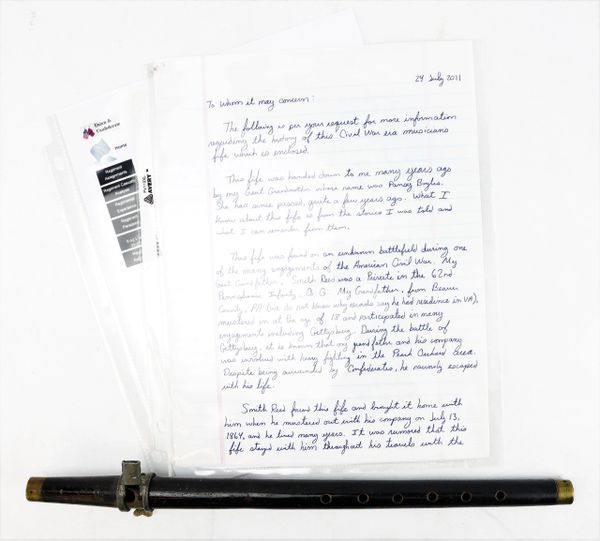 24 July 2011
To Whom it may concern:
The following is per your request for more information
regarding the history of this Civil War era musicians
fife which is enclosed.
This fife was handed down to me many years ago
by my Great Grandmother whose name was Pansy Boyles.
She has since passed, quite a few years ago. What I
know about this fife is from the stories I was told and
what I can remember from them.
This fife was found on an unknown battlefield during one
of the many engagements of the American Civil War. My
Great Grandfather, Smith Reed was a Private in the 62nd
Pennsylvania Infantry, Co. G. My Grandfather, from Beaver
County, PA (we do not know why records say he had residence in VA),
mustered in at the age of 18 and participated in many
engagements including Gettysburg. During the battle of
Gettysburg, it is known that my grandfather and his company
was involved with heavy fighting in the Peach Orchard area.
Despite being surrounded by Confederates, he narrowly escaped
with his life.
Smith Reed found this fife and brought it home with
him when he mustered out with his company on July 13,
1864, and he lived many years. It was rumored that this
fife stayed with him throughout his travels with the
Union &
Confederate
Home
Regiment
Assignments
Regiment Casualty
Analysis
Regimental
Experience
Regiment
Personnel
AVERY